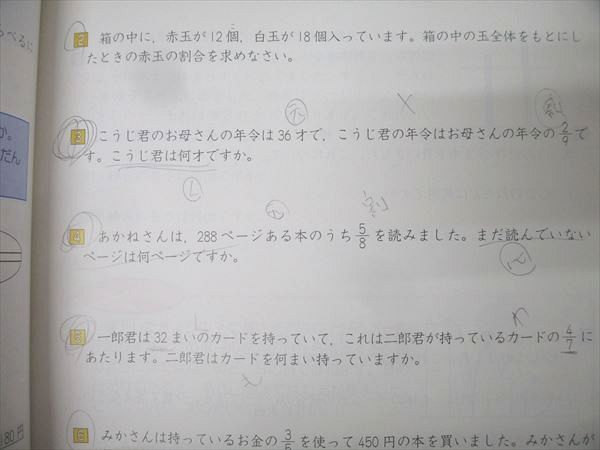 2 箱の中に，赤玉が12個，白玉が18個入っています。箱の中の玉全体をもとにし
たときの赤玉の割合を求めなさい。
3 こうじ君のお母さんの年令は36才で，こうじ君の年令はお母さんの年令の2/9で
す。こうじ君は何才ですか。
割
4 あかねさんは，288ページある本のうち5/8を読みました。まだ読んでいない
ページは何ページですか。
5 一郎君は32まいのカードを持っていて，これは二郎君が持っているカードの4/7に
あたります。二郎君はカードを何まい持っていますか。
6 みかさんは持っているお金の3/5を使って450円の本を買いました。みかさんが
か。
だん
180円